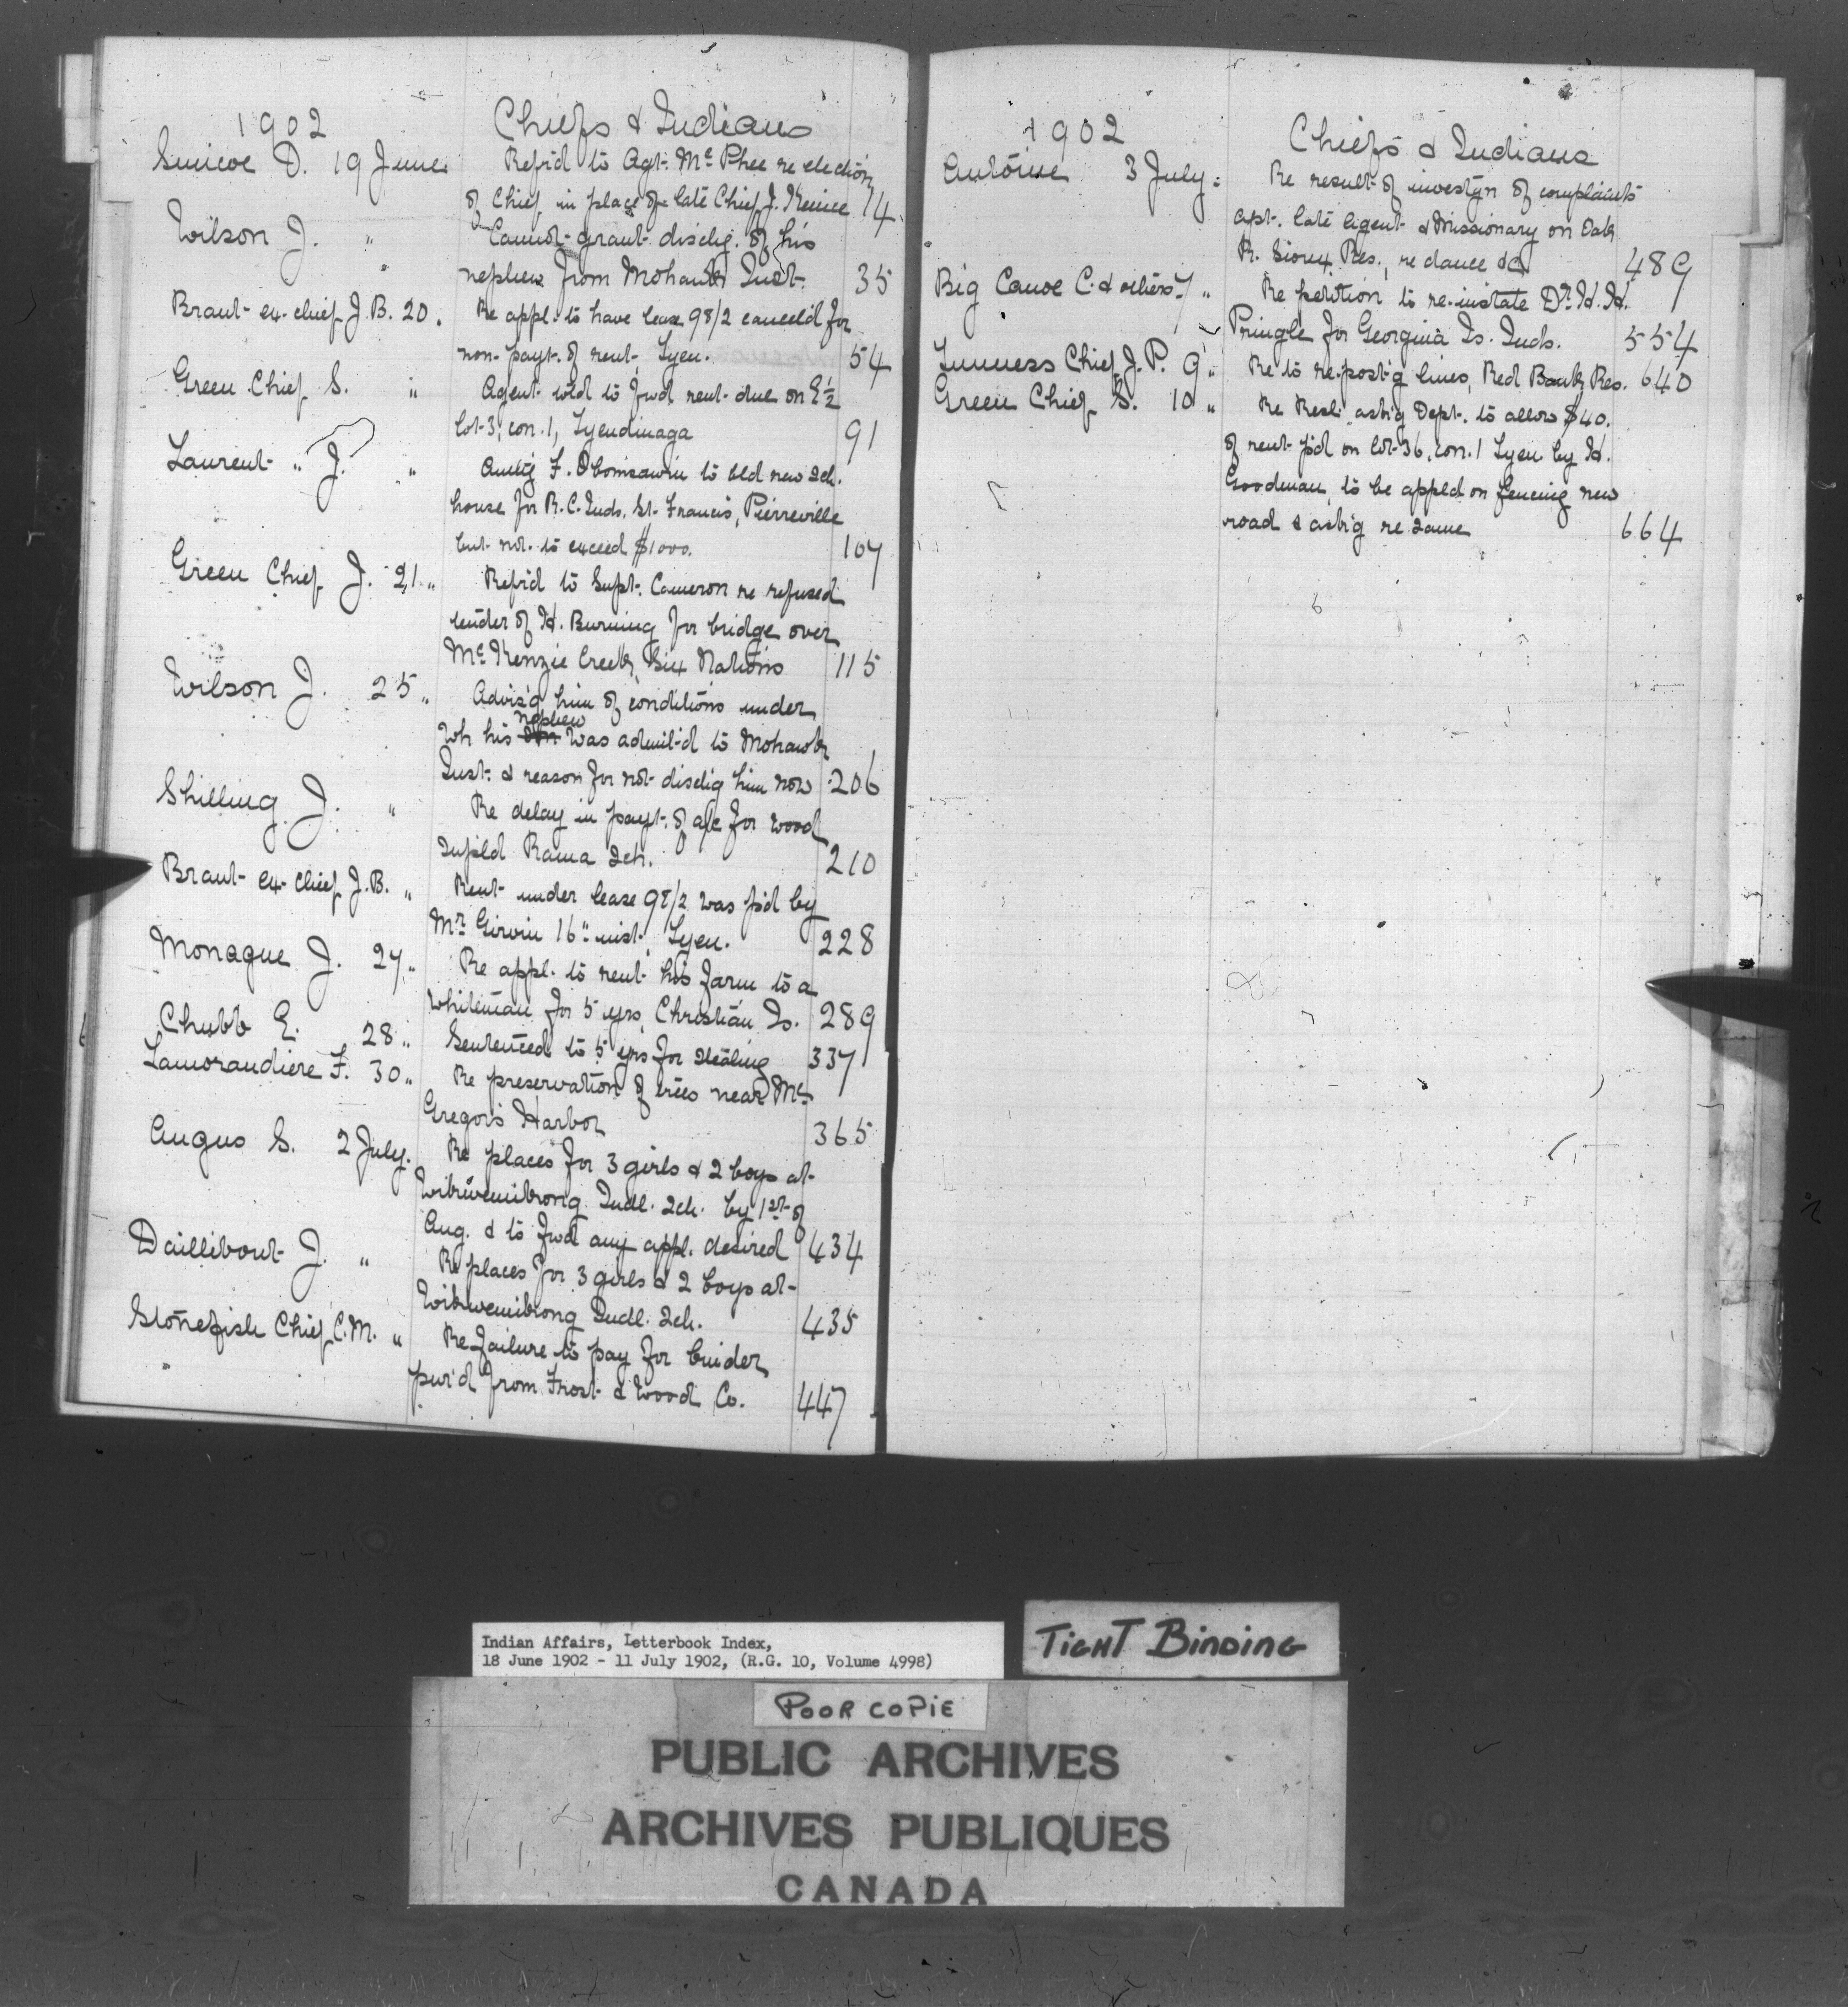 1902 Chiefs & Indians
Simcoe D. 19 June Rep'd to Agt. McPhee re election
of Chief in place of late Chief J. Kenice 14
Wilson J. " Cannot grant dischg. of his
nephew from Mohawk Inst. 35
Brant ex-chief J.B. 20 " Re appl. to have lease 98/2 cancel'd for
non-payt. of rent, Tyen. 54
Green Chief S. " Agent told to fwd rent due on E½
lot 3, con. 1, Tyendinaga 91
Laurent " J. " Authg F. Obomsawin to bld new sch.
house for R.C. Inds. St. Francis, Pierreville
but not to exceed $1000. 107
Green Chief J. 21 " Rep'd to Supt. Cameron re refused
tender of H. Burning for bridge over
McKenzie Creek, Six Nations 115
Wilson J. 25 " Advis'g him of conditions under
nephew
wh his son was admit'd to Mohawk
Inst. & reason for not dischg him now 206
Shilling J. " Re delay in payt. of a/c for wood
supld Rama sch. 210
Brant ex-chief J.B. " Rent under lease 98/2 was p'd by
Mr. Girvin 16" inst., Tyen. 228
Monague J. 27 " Re appl. to rent his farm to a
whiteman for 5 yrs, Christian Is. 289
Chubb E. 28 " Sentenced to 5 yrs for stealing 337
Lamorandiere F. 30 " Re preservation of trees near Mc
Gregor's Harbor 365
Angus S. 2 July. Re places for 3 girls & 2 boys at
Wikwemikong Indl. sch. by 1st of
Aug. & to fwd any appl. desired 434
Daillibout J. " Re places for 3 girls & 2 boys at
Wikwemikong Indl. sch. 435
Stonefish Chief C.M. " Re failure to pay for binder
pur'd from Frost & Wood Co. 447
1902 Chiefs & Indians
Antoine 3 July " Re result of investgn of complaints
agst. late Agent & Missionary on Oak
R. Sioux Res., re dance &c 489
Big Canoe C. & others 7 " Re petition to re-instate Dr. H. H.
Pringle for Georgina Is. Inds. 554
Inness Chief J. P. 9 " Re to re-post'g lines, Red Bank Res. 640
Green Chief S. 10 " Re Resl. ask'g Dept. to allow $40.
of rent p'd on lot 36, con. 1 Tyen by H.
Goodman, to be appld on fencing new
road & ask'g re same 664
Indian Affairs, Letterbook Index,
18 June 1902 - 11 July 1902, (R.G. 10, Volume 4998)
TIGHT BINDING
POOR COPIE
PUBLIC ARCHIVES
ARCHIVES PUBLIQUES
CANADA